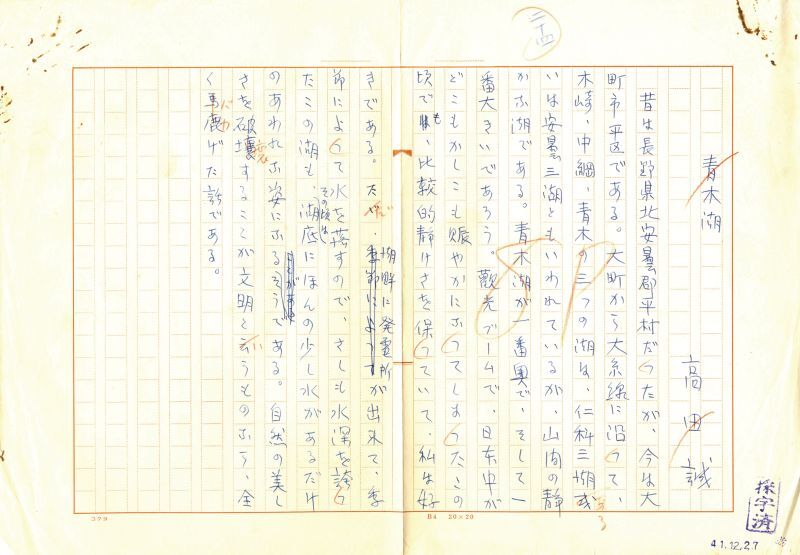 二十四
青木湖
高田誠
昔は長野県北安曇郡平村だったが、今は大
町市平区である。大町から大糸線に沿って、
木崎、中綱、青木の三つの湖は、仁科三湖或
いは安曇三湖ともいわれているが、山間の静
かな湖である。青木湖が一番奥で、そして一
番大きいであろう。観光ブームで、日本中が
どこもかしこも賑やかになってしまったこの
頃でも、比較的静けさを保っていて、私は好
きである。ただ、湖畔に発電所が出来て、季
節によって水を落すので、さしも水深を誇っ
たこの湖も、その頃は湖底にほんの少し水があるだけ
のあわれな姿になるそうである。自然の美し
さを破壊することが文明と云うものなら、全
く馬鹿げた話である。
8P
379
B4 20×20
採字済
41.12.27